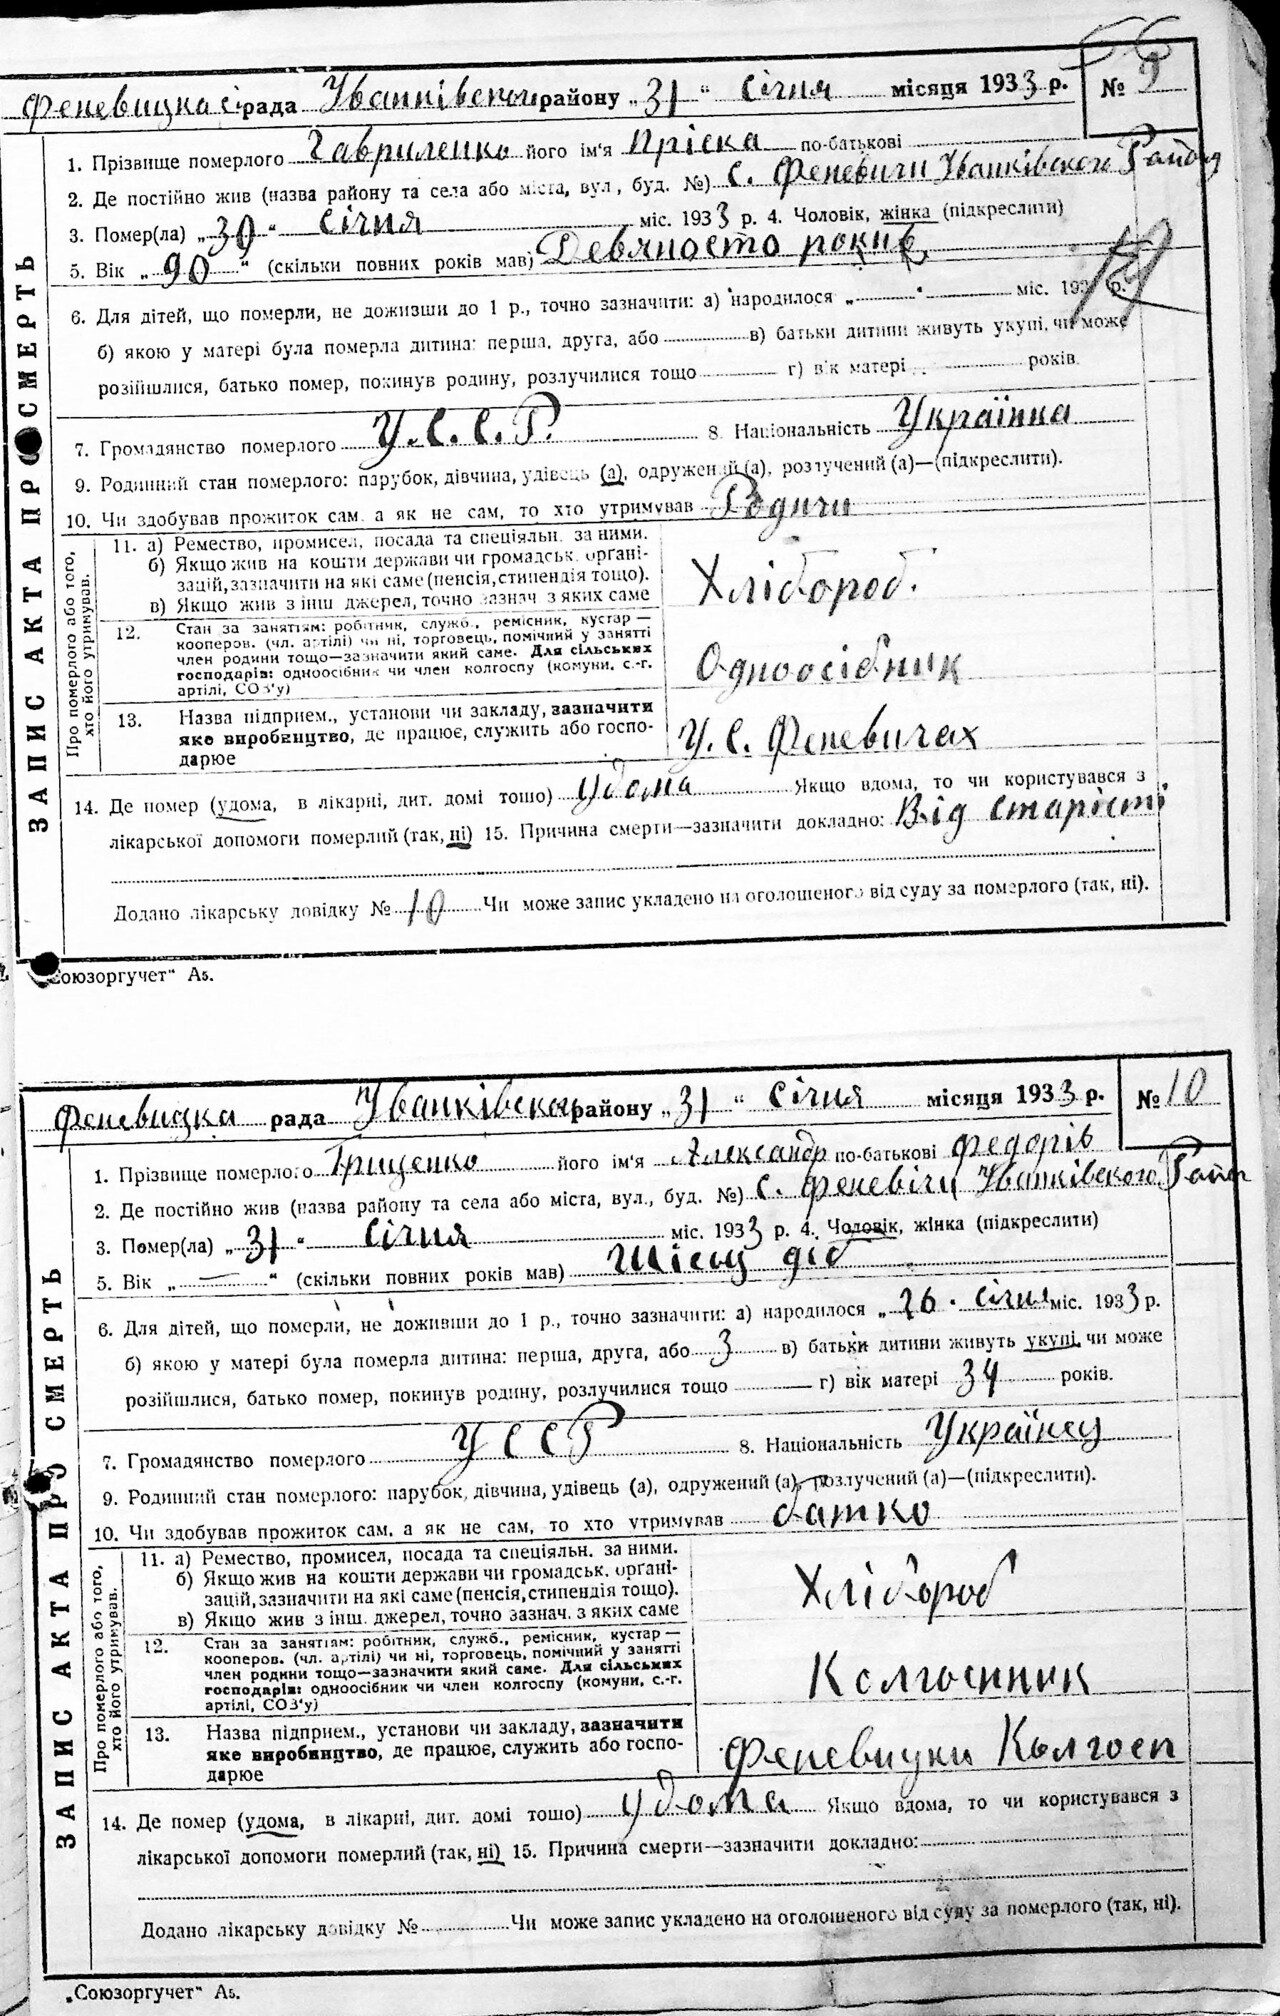 56
Феневицка сірада Уванківськи району „31“ січня місяця 1933 р. № 9
ЗАПИС АКТА ПРО СМЕРТЬ
1. Прізвище померлого Гавриленко його ім'я Пріска по-батькові
2. Де постійно жив (назва району та села або міста, вул., буд. №) С. Феневичи Уванківского Району
3. Помер(ла) „30“ січня міс. 1933 р. 4. Чоловік, жінка (підкреслити)
5. Вік „90“ (скільки повних років мав) Девяносто років
6. Для дітей, що померли, не доживши до 1 р., точно зазначити: а) народилося „ “ міс. 193 р.
б) якою у матері була померла дитина: перша, друга, або в) батьки дитини живуть укупі, чи може
розійшлися, батько помер, покинув родину, розлучилися тощо г) вік матері років.
7. Громадянство померлого У.С.С.Р. 8. Національність Українка
9. Родинний стан померлого: парубок, дівчина, удівець (а), одружений (а), розлучений (а)—(підкреслити).
10. Чи здобував прожиток сам, а як не сам, то хто утримував Родичи
Про померлого або того, хто його утримував.
11. а) Ремество, промисел, посада та спеціяльн. за ними.
б) Якщо жив на кошти держави чи громадськ. органі-
зацій, зазначити на які саме (пенсія, стипендія тощо).
в) Якщо жив з інш джерел, точно зазнач з яких саме
Хлібороб.
12. Стан за заняттям: робітник, служб., ремісник, кустар —
кооперов. (чл. артілі) чи ні, торговець, помічний у занятті
член родини тощо—зазначити який саме. Для сільських
господарів: одноосібник чи член колгоспу (комуни, с.-г.
артілі, СОЗ'у)
Одноосібник
13. Назва підприєм., установи чи закладу, зазначити
яке виробництво, де працює, служить або госпо-
дарює
У. С. Феневичах
14. Де помер (удома, в лікарні, дит. домі тощо) удома Якщо вдома, то чи користувався з
лікарської допомоги померлий (так, ні) 15. Причина смерти—зазначити докладно: Від старісті
Додано лікарську довідку № 10 Чи може запис укладено на оголошеного від суду за померлого (так, ні).
„Союзоргучет“ А5.
Феневицка рада Уванківськи району „31“ січня місяця 1933 р. № 10
ЗАПИС АКТА ПРО СМЕРТЬ
1. Прізвище померлого Грищенко його ім'я Александр по-батькові Федорів
2. Де постійно жив (назва району та села або міста, вул., буд. №) С. Феневічи Уванківского Район
3. Помер(ла) „31“ січня міс. 1933 р. 4. Чоловік, жінка (підкреслити)
5. Вік „—“ (скільки повних років мав) Шісць діб
6. Для дітей, що померли, не доживши до 1 р., точно зазначити: а) народилося „26. січня міс. 1933 р.
б) якою у матері була померла дитина: перша, друга, або 3 в) батьки дитини живуть укупі, чи може
розійшлися, батько помер, покинув родину, розлучилися тощо г) вік матері 34 років.
7. Громадянство померлого УССР 8. Національність Українец
9. Родинний стан померлого: парубок, дівчина, удівець (а), одружений (а), розлучений (а)—(підкреслити).
10. Чи здобував прожиток сам, а як не сам, то хто утримував батко
Про померлого або того, хто його утримував.
11. а) Ремество, промисел, посада та спеціяльн. за ними.
б) Якщо жив на кошти держави чи громадськ. органі-
зацій, зазначити на які саме (пенсія, стипендія тощо).
в) Якщо жив з інш. джерел, точно зазнач. з яких саме
Хлібороб
12. Стан за заняттям: робітник, служб., ремісник, кустар —
кооперов. (чл. артілі) чи ні, торговець, помічний у занятті
член родини тощо—зазначити який саме. Для сільських
господарів: одноосібник чи член колгоспу (комуни, с.-г.
артілі, СОЗ'у)
Колгоспник
13. Назва підприєм., установи чи закладу, зазначити
яке виробництво, де працює, служить або госпо-
дарює
Феневицки Колгосп
14. Де помер (удома, в лікарні, дит. домі тощо) удома Якщо вдома, то чи користувався з
лікарської допомоги померлий (так, ні) 15. Причина смерти—зазначити докладно:
Додано лікарську довідку № Чи може запис укладено на оголошеного від суду за померлого (так, ні).
„Союзоргучет“ А5.